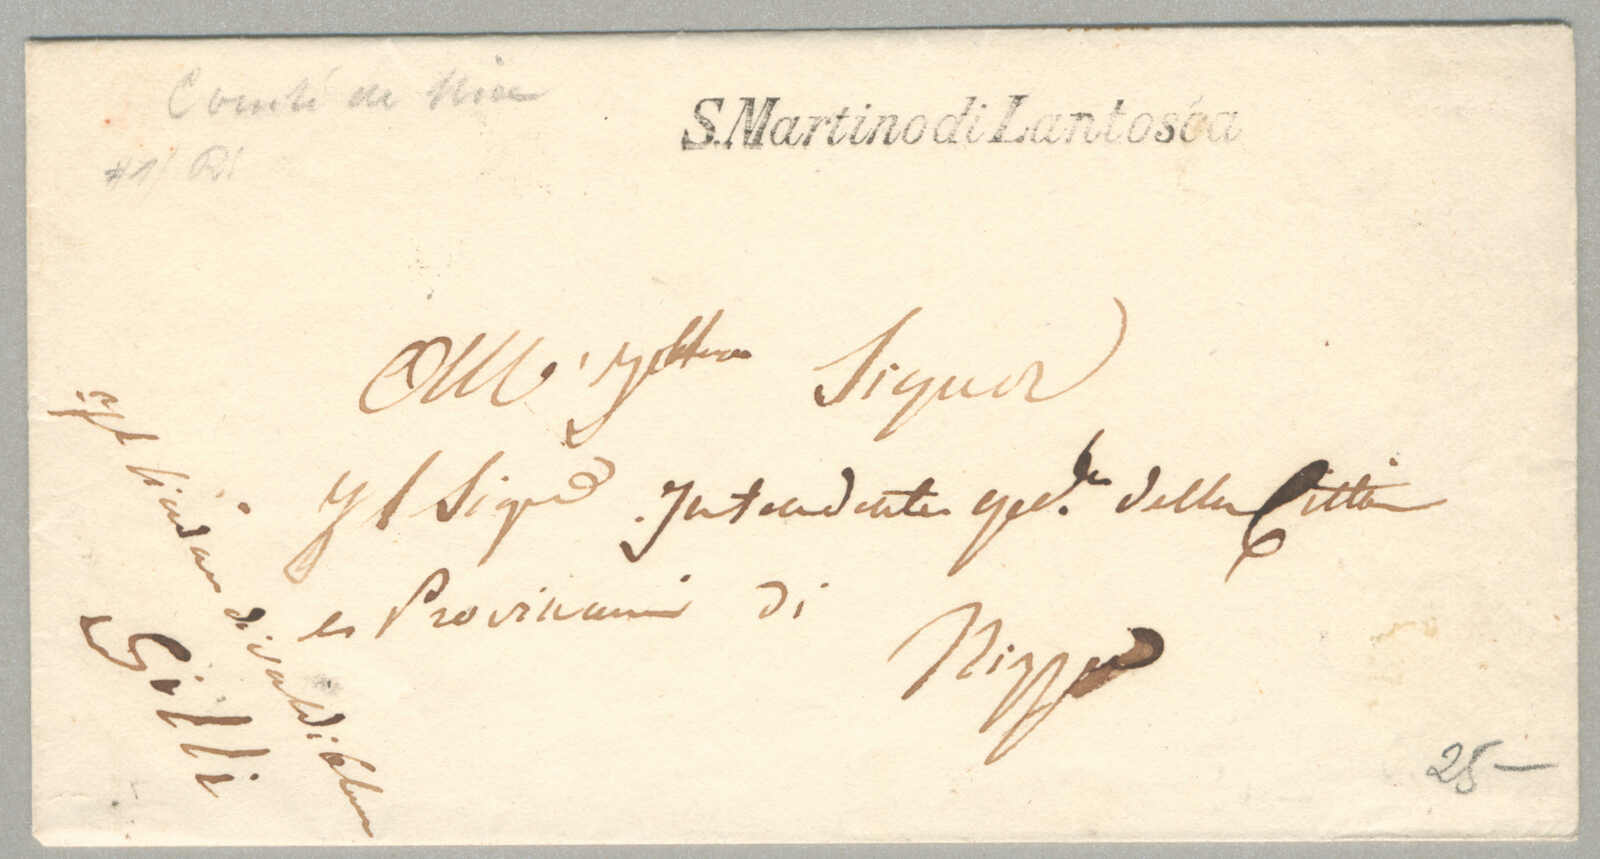 Comté de Nice
S. Martino di Lantosca
#1/ R1
All' Ill.mo Signor
Il Sigr Intendente Gen.le della Città
e Provincia di
Nizza
Il Sindaco di Valdiblora
Gilli
25-